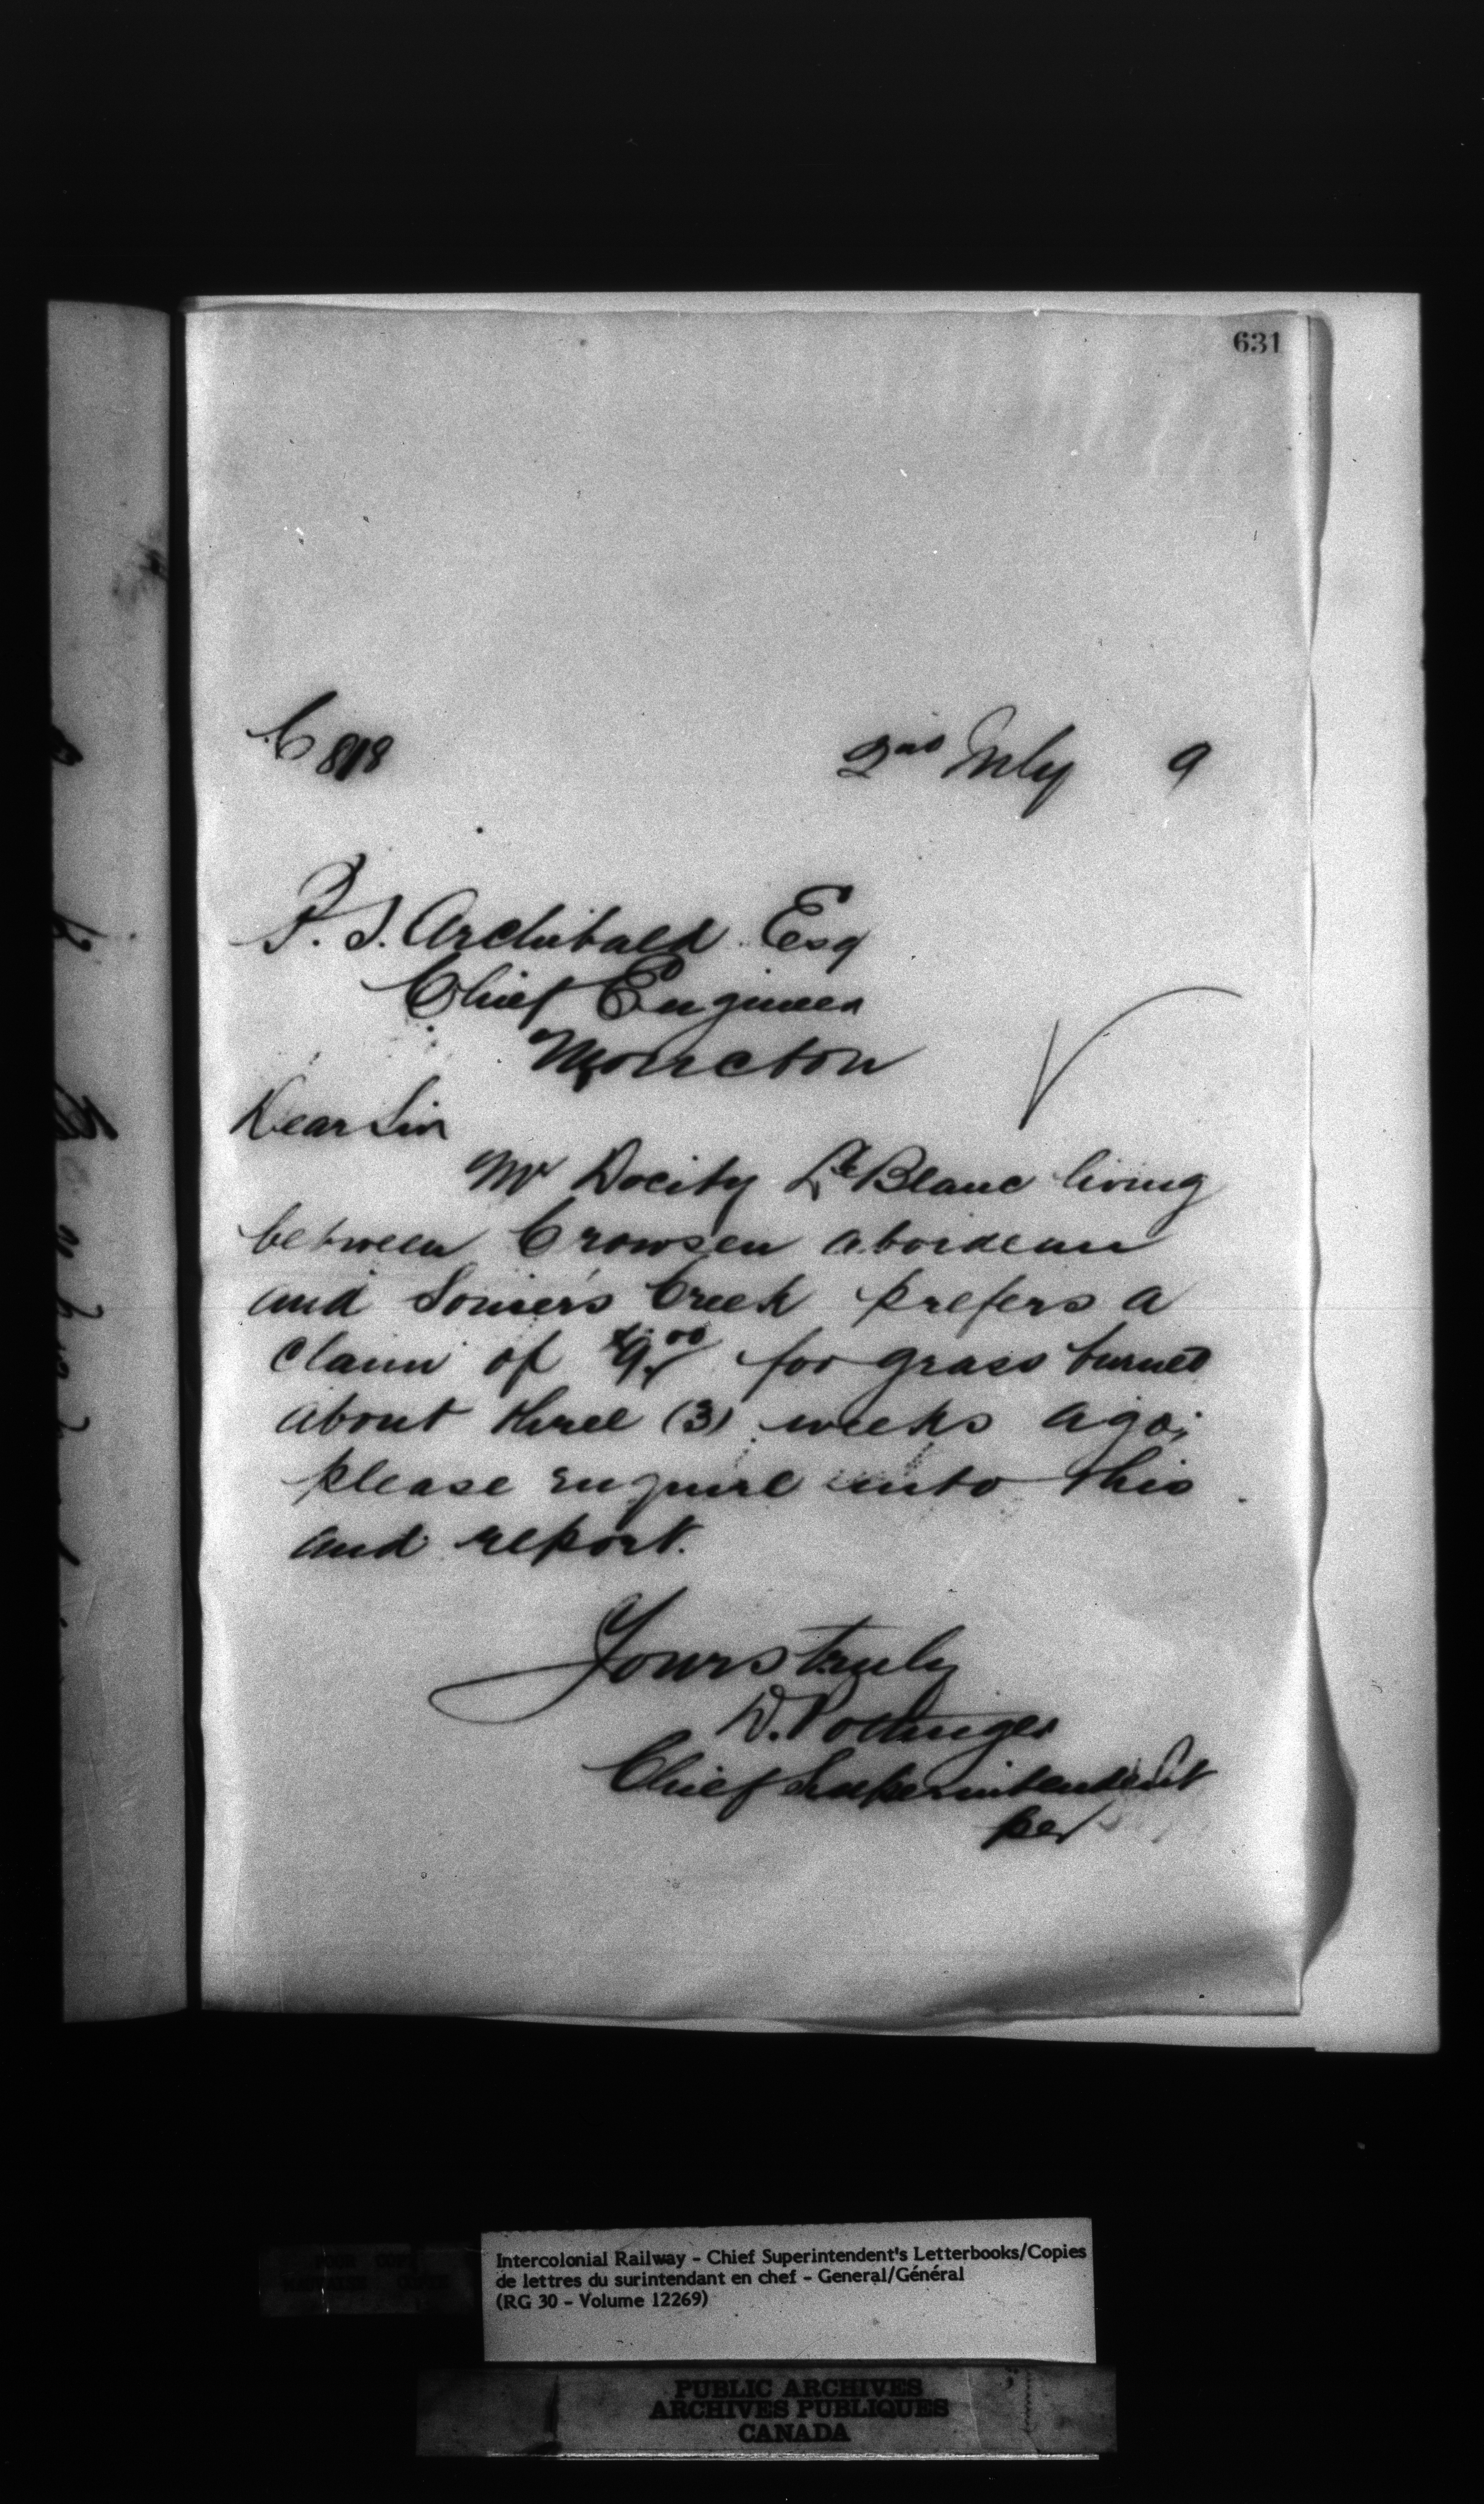 631
C 818 2nd July 9
P. S. Archibald Esq
Chief Engineer
Moncton
Dear Sir
Mr Docity LeBlanc living
between
and Creek prefers a
claim of $9.00 for grass burned
about three (3) weeks ago;
please enquire into this
and report.
Yours truly
D. Pottinger
Chief Superintendent
per
Intercolonial Railway - Chief Superintendent's Letterbooks/Copies
de lettres du surintendant en chef - General/Général
(RG 30 - Volume 12269)
PUBLIC ARCHIVES
ARCHIVES PUBLIQUES
CANADA